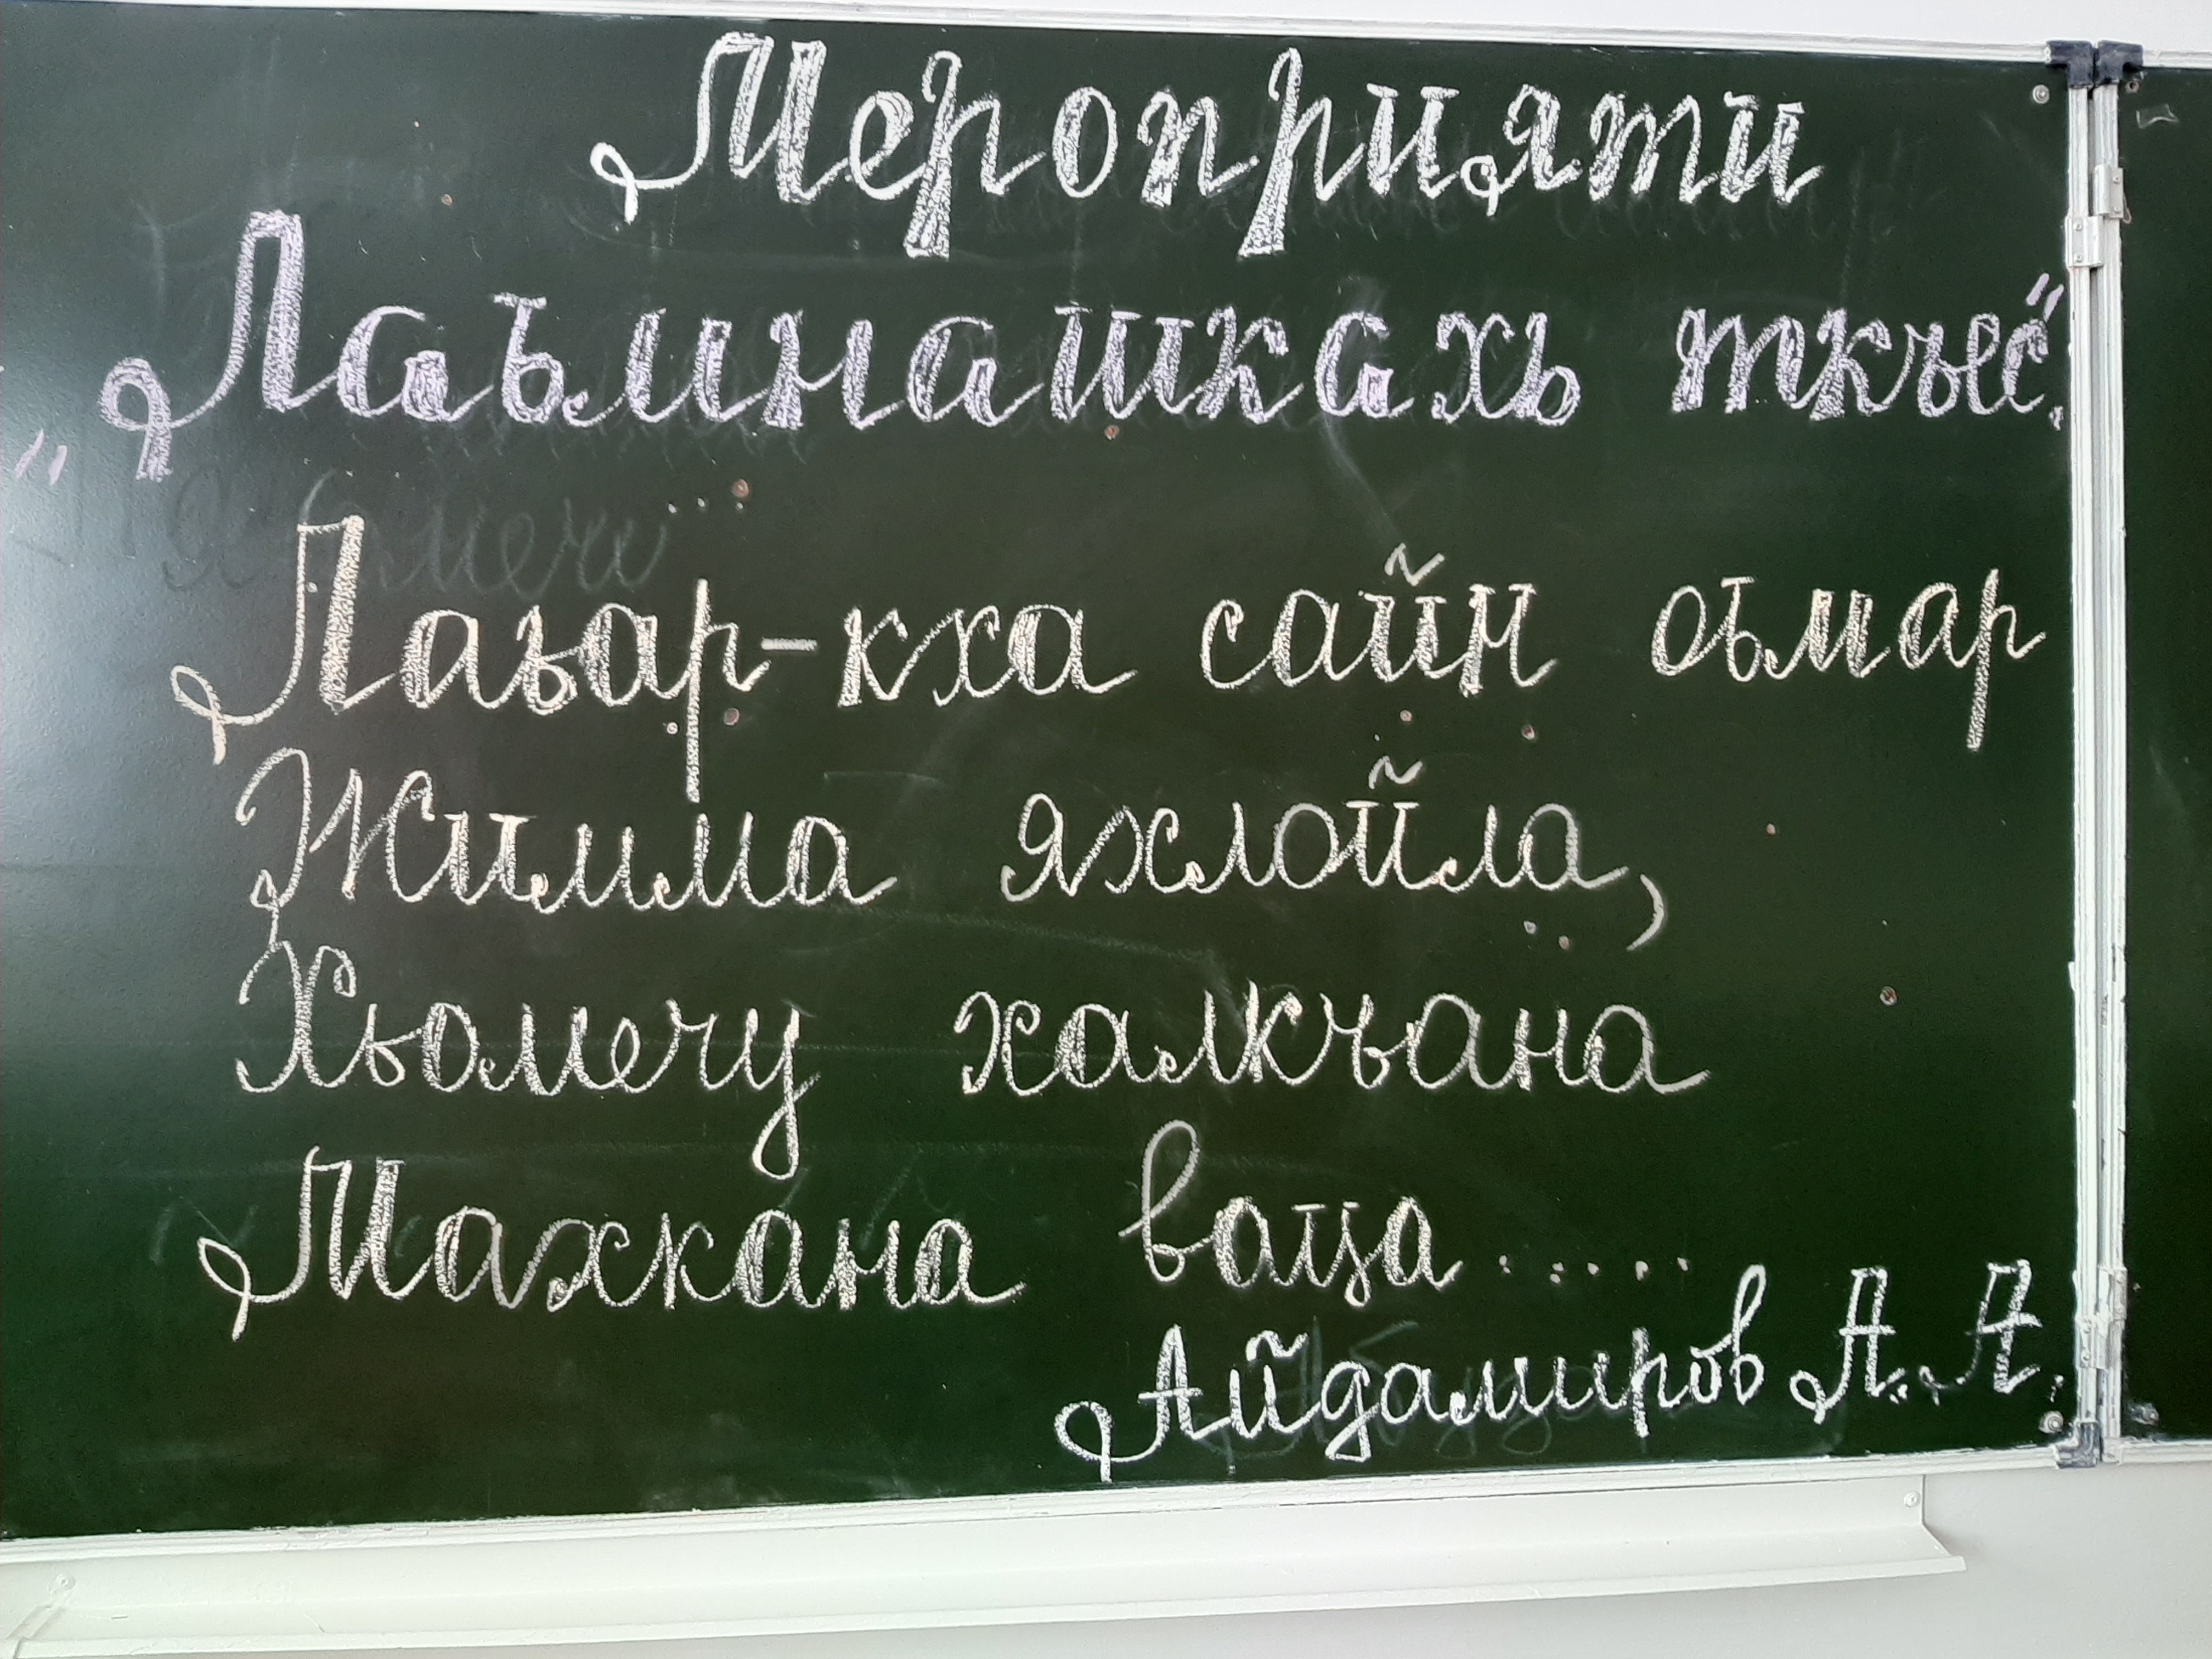 Мероприяти
„Лаьмнашкахь ткъес".
Лаьар-кха сайн оьмар
Жимма яхлойла,
Хьомечу халкъана
Махкана ваца.....
Айдамиров А. А.